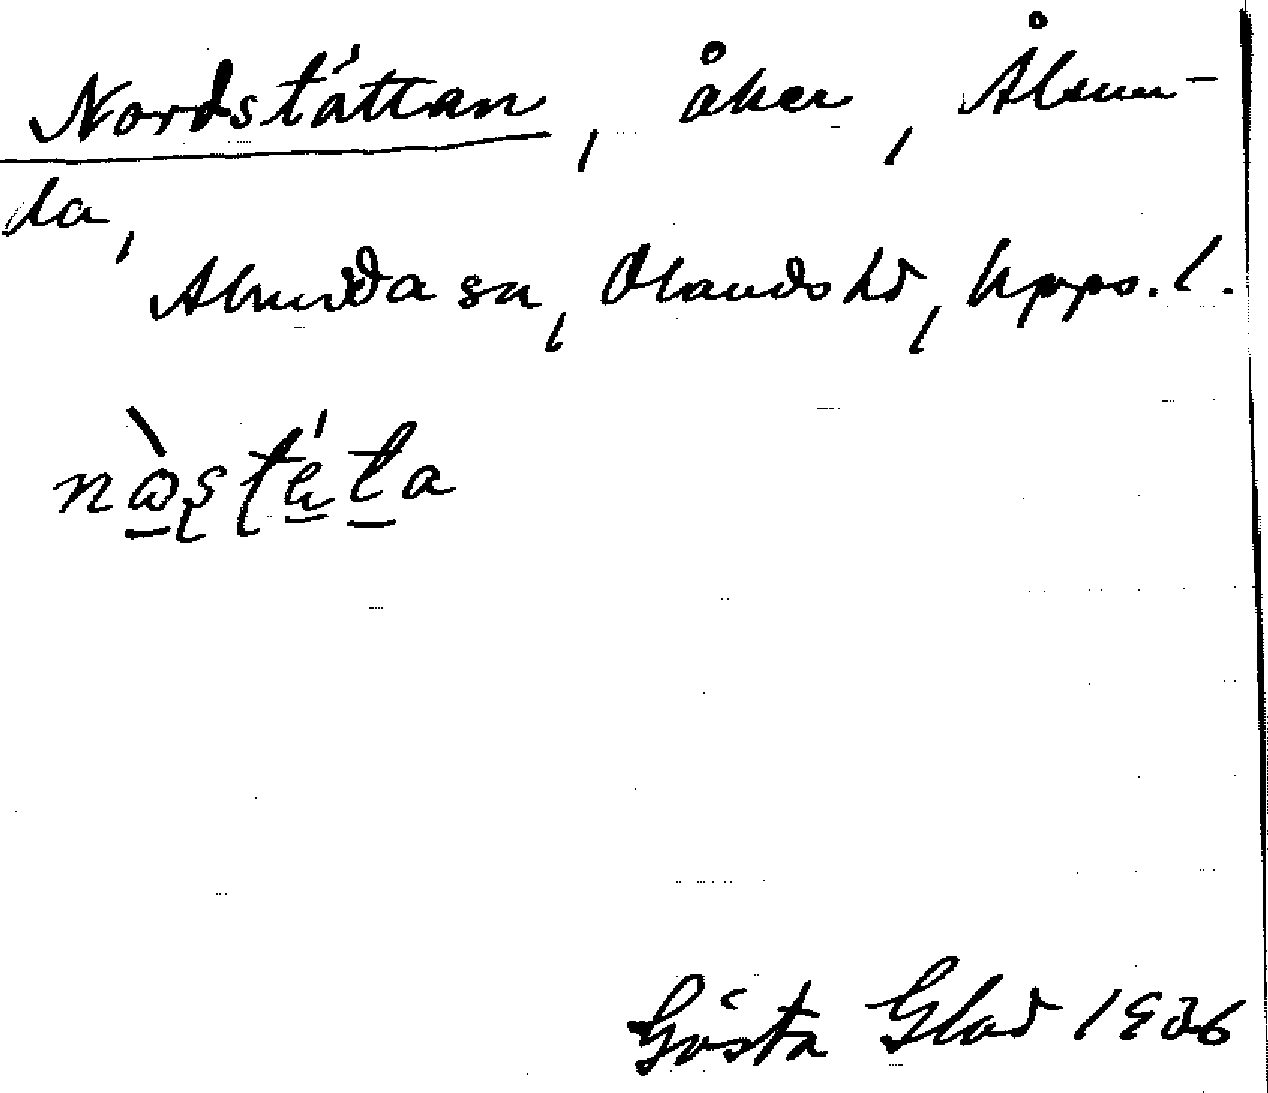 Nordstättan, åker, Ålmun-
da,
Almunda sn, Olands hd, Upps. l.
Gösta Glad 1936